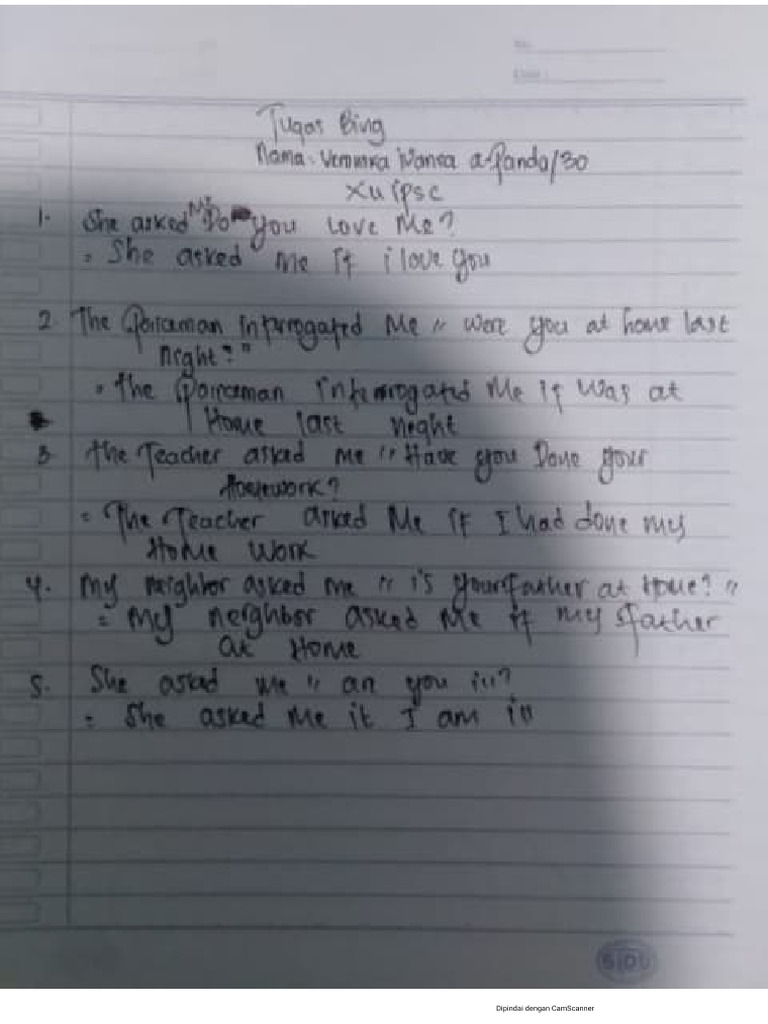 Tugas Bing
Nama: Veronika
1. She asked Me Do you Love Me?
= She asked me If i love you
2. The Policaman Interrogated Me " were you at home last
night?"
= The Policaman Interrogated Me if was at
Home last night
3. The Teacher asked me " Have you Done your
Homework?
= The Teacher asked Me If I had done my
Home Work
4. My neighbor asked me " is your father at Home? "
= My neighbor asked Me if my father
at Home
5. She asked me " are you ill?
= She asked Me if I am ill
SIDU
Dipindai dengan CamScanner